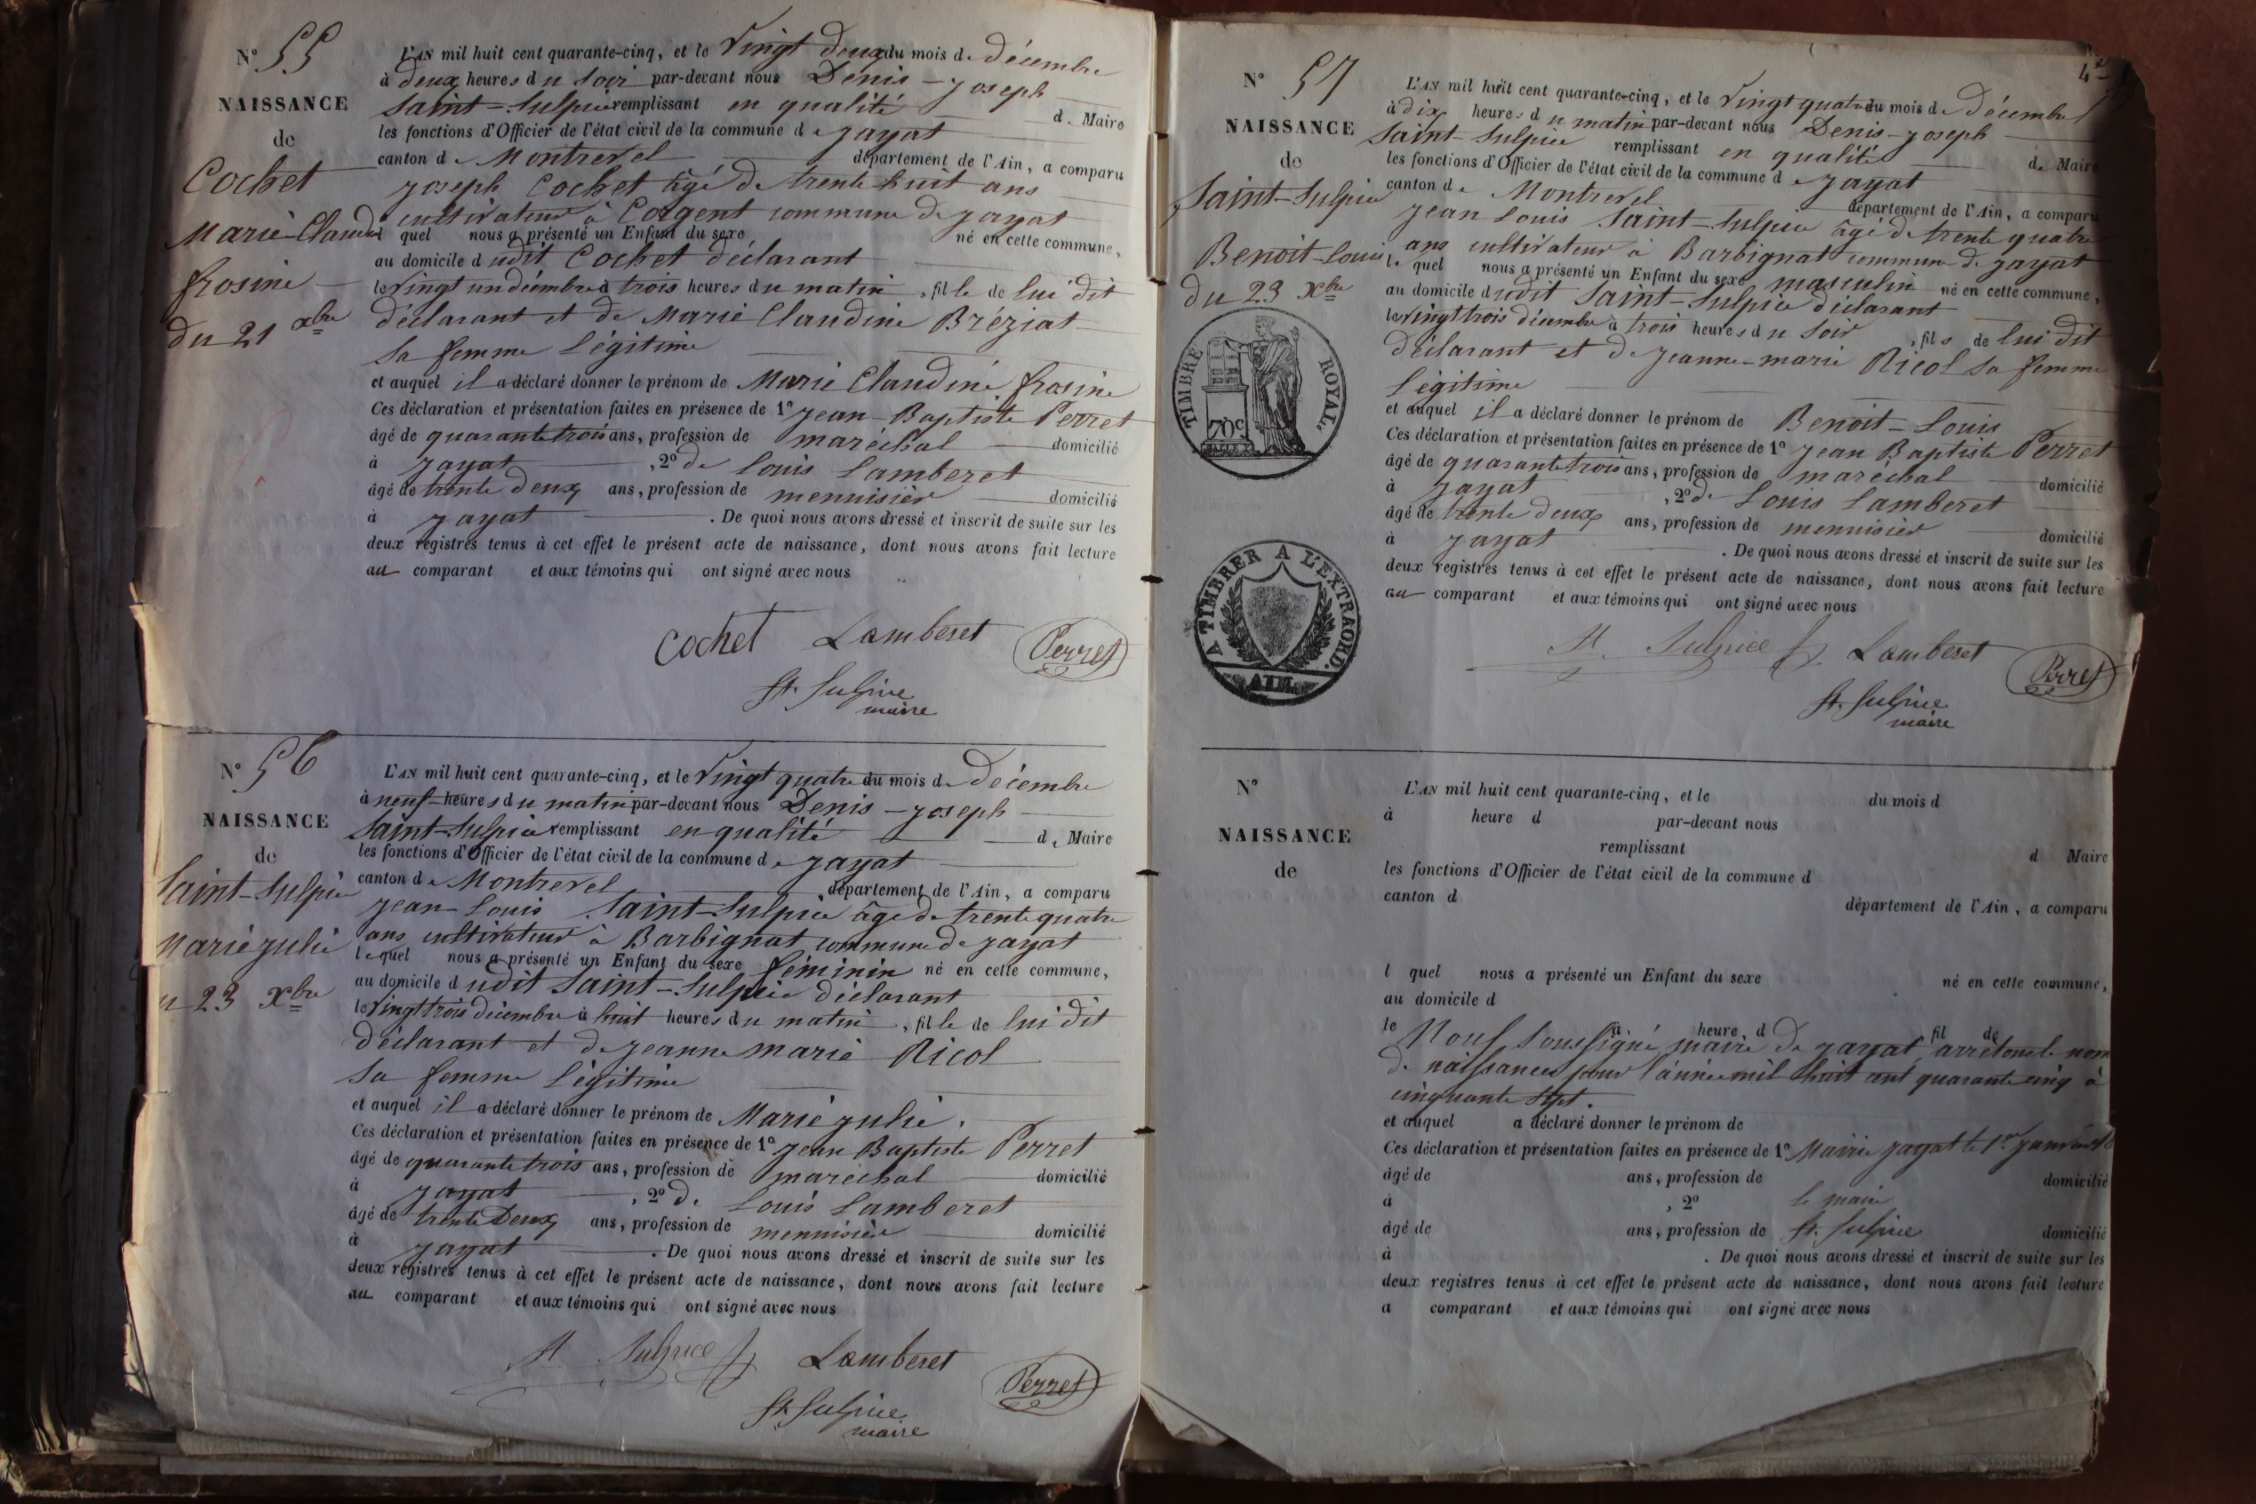 N° 55
NAISSANCE
de
Cochet
Marie-Claudi
frosine
du 21 xbre
L'AN mil huit cent quarante-cinq, et le Vingt deux du mois de décembre
à deux heures du soir par-devant nous Denis - joseph
Saint-Sulpice remplissant en qualité de Maire
les fonctions d'Officier de l'état civil de la commune de jayat
canton de Montrevel département de l'Ain, a comparu
joseph Cochet âgé de trente huit ans
cultivateur à Corgent commune de jayat
l quel nous a présenté un Enfant du sexe né en cette commune,
au domicile dudit Cochet déclarant
le Vingt un décembre à trois heures du matin, fille de lui dit
déclarant et de Marie Claudine Bréziat
sa femme légitime
et auquel il a déclaré donner le prénom de Marie Claudine frosine
Ces déclaration et présentation faites en présence de 1° jean-Baptiste Perret
âgé de quarante trois ans, profession de maréchal domicilié
à jayat, 2° de Louis Lamberet
âgé de trente deux ans, profession de menuisier domicilié
à jayat. De quoi nous avons dressé et inscrit de suite sur les
deux registres tenus à cet effet le présent acte de naissance, dont nous avons fait lecture
au comparant et aux témoins qui ont signé avec nous
Cochet Lamberet Perret
St. Sulpice
maire
N° 56
NAISSANCE
de
Saint-Sulpice
Marie julie
u 23 xbre
L'AN mil huit cent quarante-cinq, et le Vingt quatre du mois de décembre
à neuf heures du matin par-devant nous Denis - joseph
Saint-Sulpice remplissant en qualité de Maire
les fonctions d'Officier de l'état civil de la commune de jayat
canton de Montrevel département de l'Ain, a comparu
jean-Louis Saint-Sulpice âgé de trente quatre
ans cultivateur à Barbignat commune de jayat
lequel nous a présenté un Enfant du sexe féminin né en cette commune,
au domicile dudit Saint-Sulpice déclarant
le Vingt trois décembre à huit heures du matin, fille de lui dit
déclarant et de jeanne marie Ricol
sa femme légitime
et auquel il a déclaré donner le prénom de Marie julie.
Ces déclaration et présentation faites en présence de 1° jean Baptiste Perret
âgé de quarante trois ans, profession de maréchal domicilié
à jayat, 2° de Louis Lamberet
âgé de trente Deux ans, profession de menuisier domicilié
à jayat. De quoi nous avons dressé et inscrit de suite sur les
deux registres tenus à cet effet le présent acte de naissance, dont nous avons fait lecture
au comparant et aux témoins qui ont signé avec nous
St Sulpice Lamberet Perret
St. Sulpice
maire
N° 57
NAISSANCE
de
Saint-Sulpice
Benoit-Louis
du 23 xbre
TIMBRE ROYAL
70c
A TIMBRER A L'EXTRAORD.
AIN
L'AN mil huit cent quarante-cinq, et le Vingt quatre du mois de décembre
à dix heures du matin par-devant nous Denis-joseph
Saint-Sulpice remplissant en qualité de Maire
les fonctions d'Officier de l'état civil de la commune de jayat
canton de Montrevel département de l'Ain, a comparu
jean Louis Saint-Sulpice âgé de trente quatre
ans cultivateur à Barbignat commune de jayat
le quel nous a présenté un Enfant du sexe masculin né en cette commune,
au domicile dudit Saint-Sulpice déclarant
le Vingt trois décembre à trois heures du soir, fils de lui dit
déclarant et de jeanne-marie Ricol sa femme
légitime
et auquel il a déclaré donner le prénom de Benoit-Louis
Ces déclaration et présentation faites en présence de 1° jean Baptiste Perret
âgé de quarante trois ans, profession de maréchal domicilié
à jayat, 2° de Louis Lamberet
âgé de trente deux ans, profession de menuisier domicilié
à jayat. De quoi nous avons dressé et inscrit de suite sur les
deux registres tenus à cet effet le présent acte de naissance, dont nous avons fait lecture
au comparant et aux témoins qui ont signé avec nous
St. Sulpice Lamberet Perret
St. Sulpice
maire
N°
NAISSANCE
de
L'AN mil huit cent quarante-cinq, et le du mois d
à heure d par-devant nous
remplissant d Maire
les fonctions d'Officier de l'état civil de la commune d
canton d département de l'Ain, a comparu
l quel nous a présenté un Enfant du sexe né en cette commune,
au domicile d
le à heure d fil de
Nous soussigné maire de jayat arrêtons le nom
de naissances pour l'année mil huit cent quarante cinq à
cinquante sept.
et auquel a déclaré donner le prénom de
Ces déclaration et présentation faites en présence de 1° Mairie jayat le 1er janvier
âgé de ans, profession de domicilié
à , 2° le maire
âgé de ans, profession de St. Sulpice domicilié
à . De quoi nous avons dressé et inscrit de suite sur les
deux registres tenus à cet effet le présent acte de naissance, dont nous avons fait lecture
a comparant et aux témoins qui ont signé avec nous